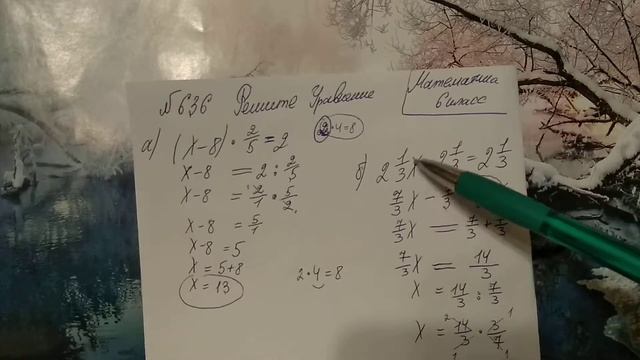 №636 Решите Уравнение
Математика
6 класс
а) (x-8) · 2/5 = 2
2·4=8
x-8 = 2 : 2/5
x-8 = 2/1 · 5/2
x-8 = 5/1
x-8 = 5
x = 5+8
x = 13
2·4=8
б) 2 1/3 x - 2 1/3 = 2 1/3
7/3 x -
7/3 x = 7/3 + 7/3
7/3 x = 14/3
x = 14/3 : 7/3
x = 14/3 · 3/7